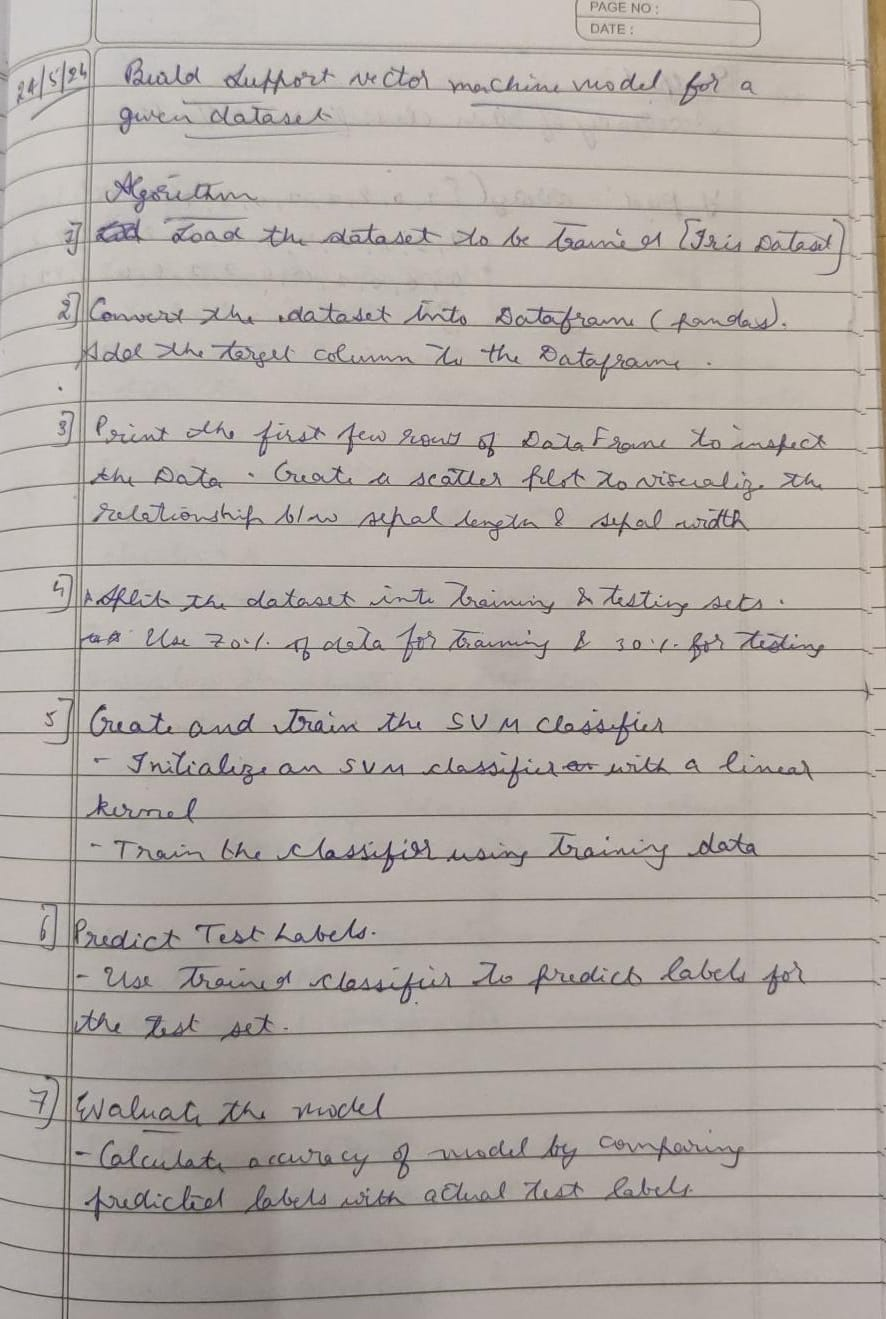 PAGE NO:
DATE:
24/5/24 Build Support vector machine model for a
given dataset
Algorithm
1] Load the dataset to be trained [Iris Dataset]
2] Convert the dataset into Dataframe (pandas).
Add the target column to the Dataframe.
3] Print the first few rows of DataFrame to inspect
the Data. Create a scatter plot to visualize the
relationship b/w sepal length & sepal width
4] Split the dataset into Training & testing sets.
Use 70% of data for training & 30% for testing
5] Create and train the SVM classifier
- Initialize an SVM classifier with a linear
kernel
- Train the classifier using training data
6] Predict Test Labels.
- Use Trained classifier to predict labels for
the test set.
7] Evaluate the model
- Calculate accuracy of model by comparing
predicted labels with actual test labels.